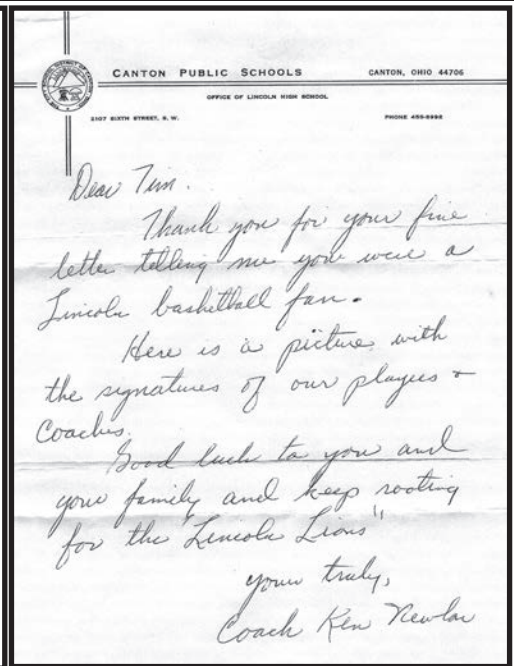 CANTON PUBLIC SCHOOLS CANTON, OHIO 44706
OFFICE OF LINCOLN HIGH SCHOOL
2107 SIXTH STREET, S. W. PHONE
Dear Tim.
Thank you for your fine
letter telling me you were a
Lincoln basketball fan.
Here is a picture with
the signatures of our players &
Coaches.
Good luck to you and
your family and keep rooting
for the "Lincoln Lions"
yours truly,
Coach Ken Newlon